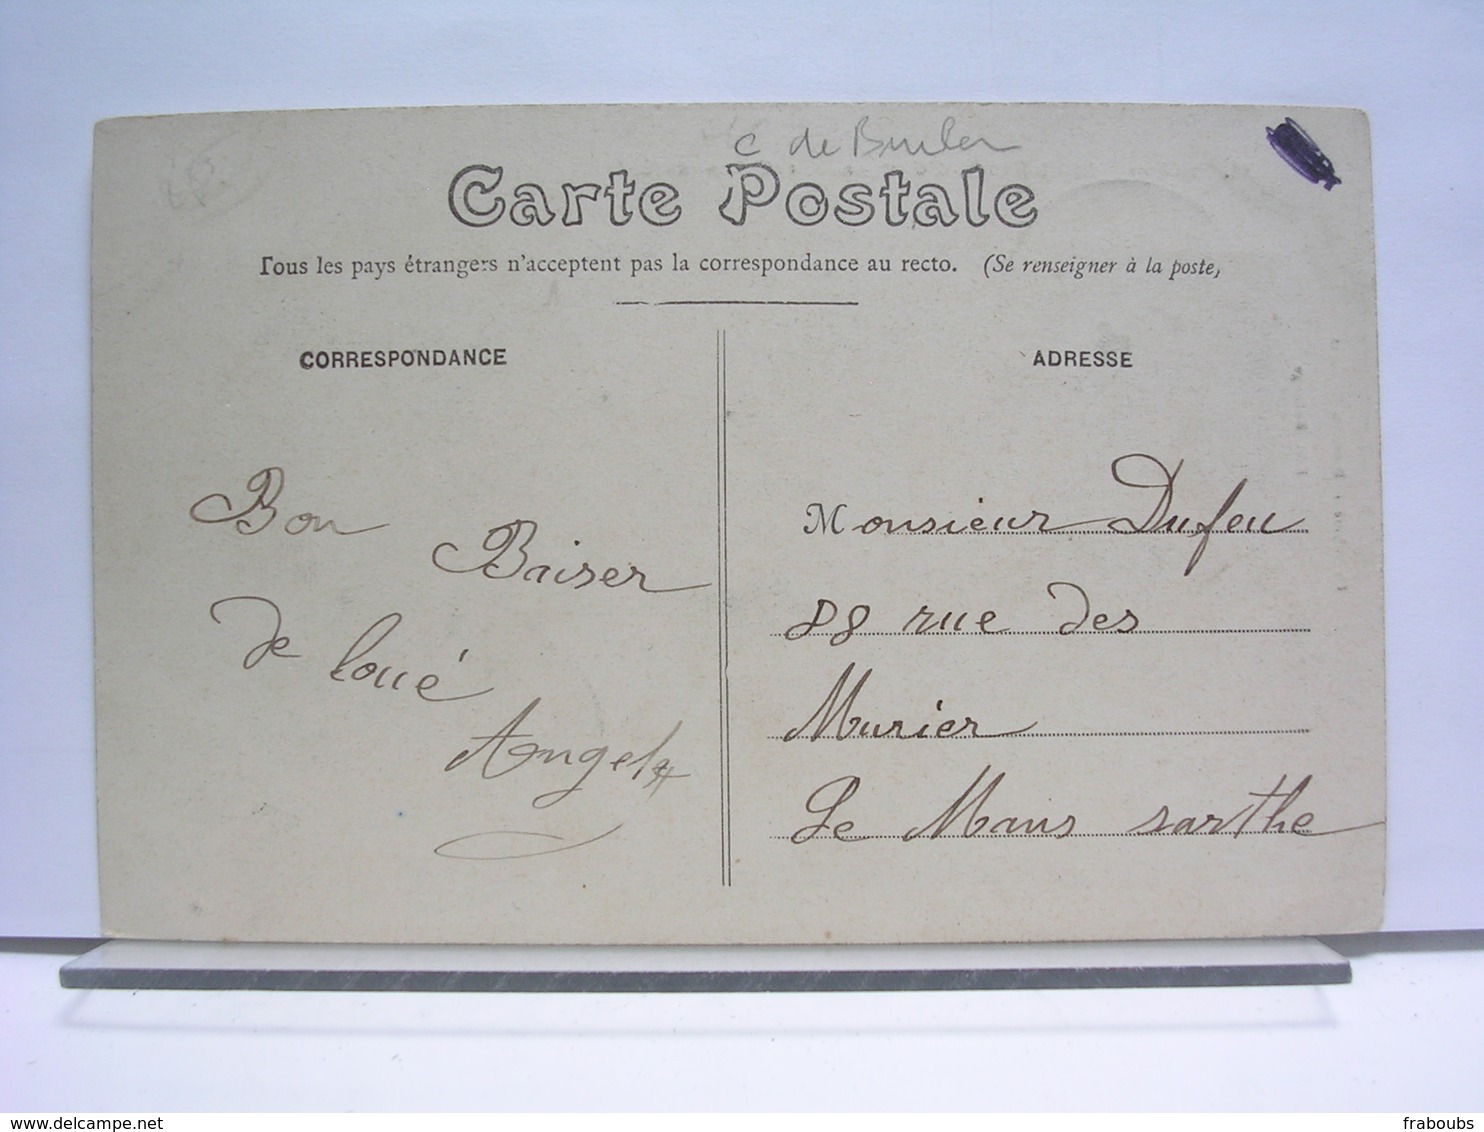 C de
Carte Postale
Tous les pays étrangers n'acceptent pas la correspondance au recto. (Se renseigner à la poste)
CORRESPONDANCE
Bon
Baiser
de loué
Angel
ADRESSE
Monsieur Dufeu
88 rue des
Murier
Le Mans sarthe
delcampe.net
fraboubs